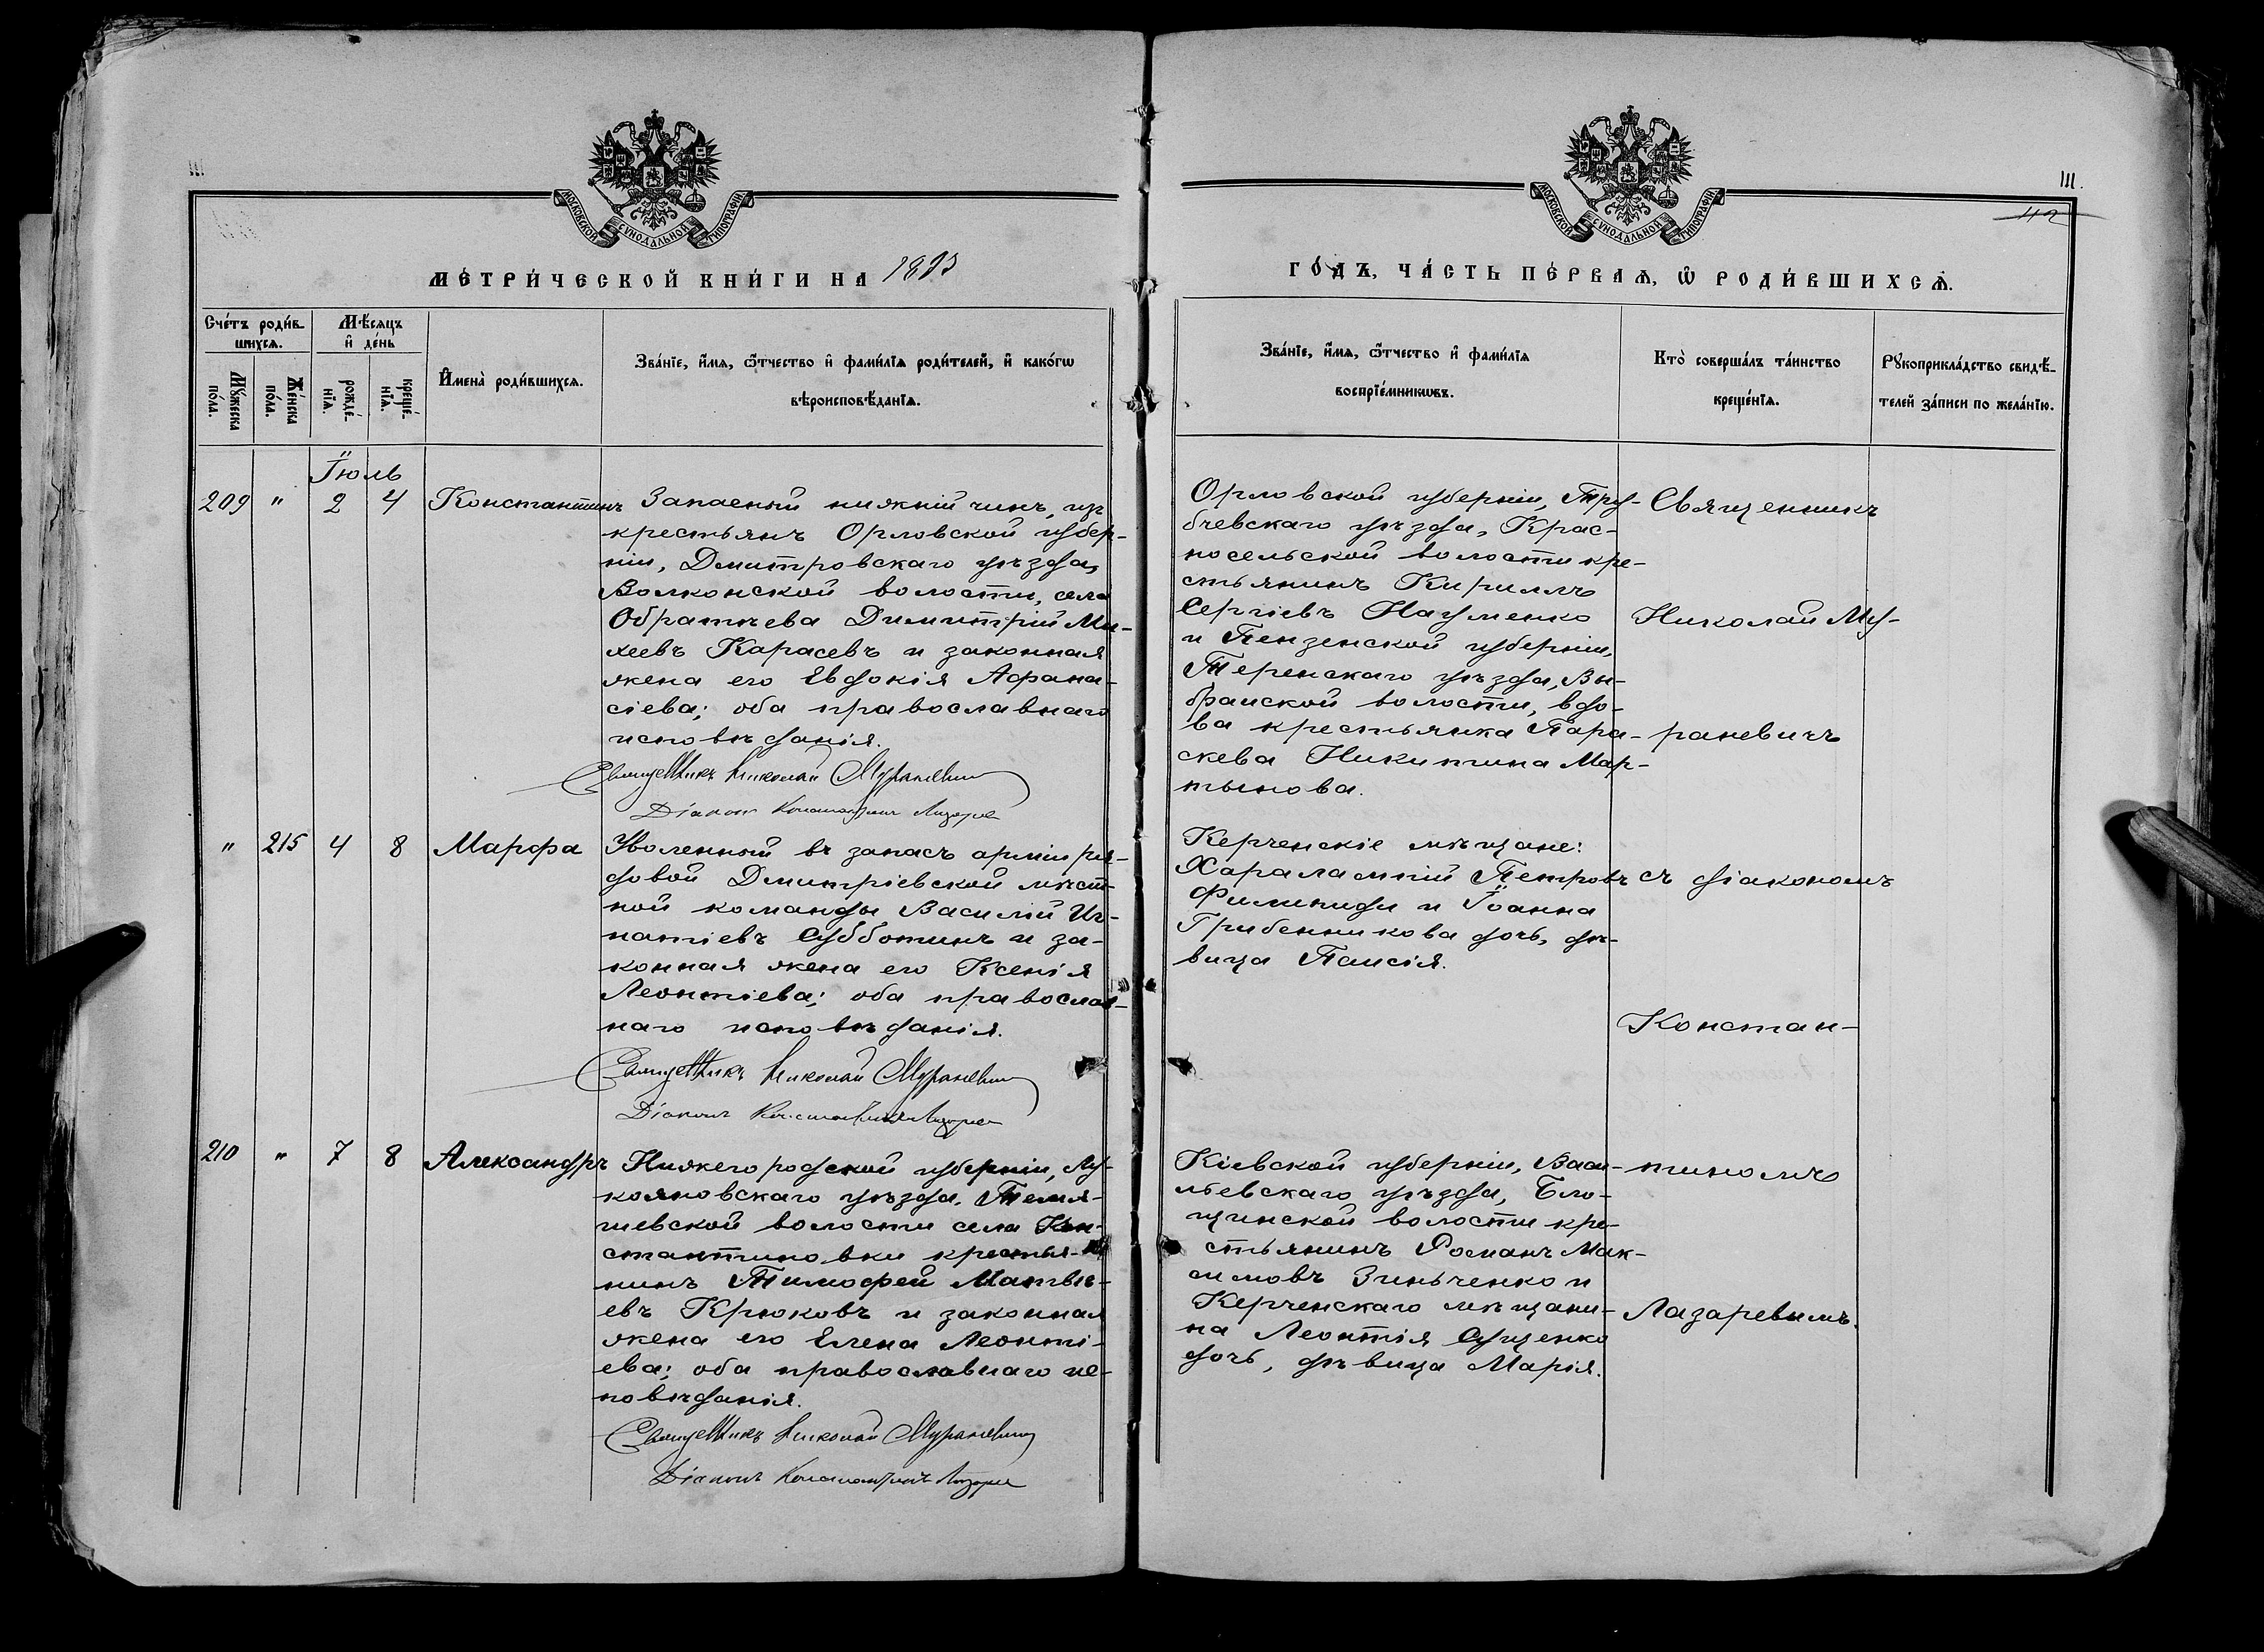 МОСКОВСКОЙ СУНОДАЛЬНОЙ ТИПОГРАФІИ
МЕТРИ́ЧЕСКОЙ КНИ́ГИ НА 1893
Сче́тъ роди́в-
шихсѧ.
Мѣ́сѧцъ
и҆ де́нь
Мꙋ́жеска
по́ла.
Же́нска
по́ла.
рожде́-
нїѧ.
креще́-
нїѧ.
И҆мена̀ роди́вшихсѧ.
Зва́нїе, и҆́мѧ, ѻ҆́тчество и҆ фами́лїѧ роди́телей, и҆ како́гѡ
вѣроисповѣ́данїѧ.
Іюль
209 " 2 4 Константинъ
Запасный нижній чинъ, из
крестьянъ Орловской губер-
ніи, Дмитровскаго уѣзда,
Волконской волости, села
Обратѣева Димитрій Ми-
хеевъ Карасевъ и законная
жена его Евдокія Афана-
сіева; оба православнаго
исповѣданія.
Священникъ Николай Мураневич
Діаконъ Константинъ Лазарев
" 215 4 8 Марфа
Уволенный въ запасъ арміи ря-
довой Дмитріевской мѣст-
ной команды Василій Иг-
натіевъ Субботинъ и за-
конная жена его Ксенія
Леонтіева; оба православ-
наго исповѣданія.
Священникъ Николай Мураневич
Діаконъ Константинъ Лазарев
210 " 7 8 Александръ
Нижегородской губерніи, Лу-
кояновскаго уѣзда, Темя-
шевской волости села Кон-
стантиновки крестья-
нинъ Тимофей Матвѣ-
евъ Крюковъ и законная
жена его Елена Леонті-
ева; оба православнаго ис-
повѣданія.
Священникъ Николай Мураневич
Діаконъ Константинъ Лазарев
111.
42
МОСКОВСКОЙ СУНОДАЛЬНОЙ ТИПОГРАФІИ
ГО́ДЪ, ЧА́СТЬ ПЕ́РВАѦ, Ѡ҆ РОДИ́ВШИХСѦ.
Зва́нїе, и҆́мѧ, ѻ҆́тчество и҆ фами́лїѧ
воспрїе́мникѡвъ.
Кто̀ соверша́лъ та́инство
креще́нїѧ.
Рꙋкоприкла́дство свидѣ́-
телей за́писи по жела́нїю.
Орловской губерніи, Тру-
бчевскаго уѣзда, Крас-
носельской волости кре-
стьянинъ Кириллъ
Сергіевъ Науменко
и Пензенской губерніи,
Теренскаго уѣзда, Вы-
бранской волости, вдо-
ва крестьянка Пара-
скева Никитина Мар-
тынова.
Керченскіе мѣщане:
Харалампій Петровъ
Филипиди и Іоанна
Грибенникова дочь, дѣ-
вица Паисія.
Кіевской губерніи, Васи-
льевскаго уѣзда, Бло-
щинской волости кре-
стьянинъ Романъ Мак-
симовъ Зинченко и
Керченскаго мѣщани-
на Леонтія Сущенко
дочь, дѣвица Марія.
Священникъ
Николай Му-
раневичъ
съ діакономъ
Констан-
тиномъ
Лазаревымъ.